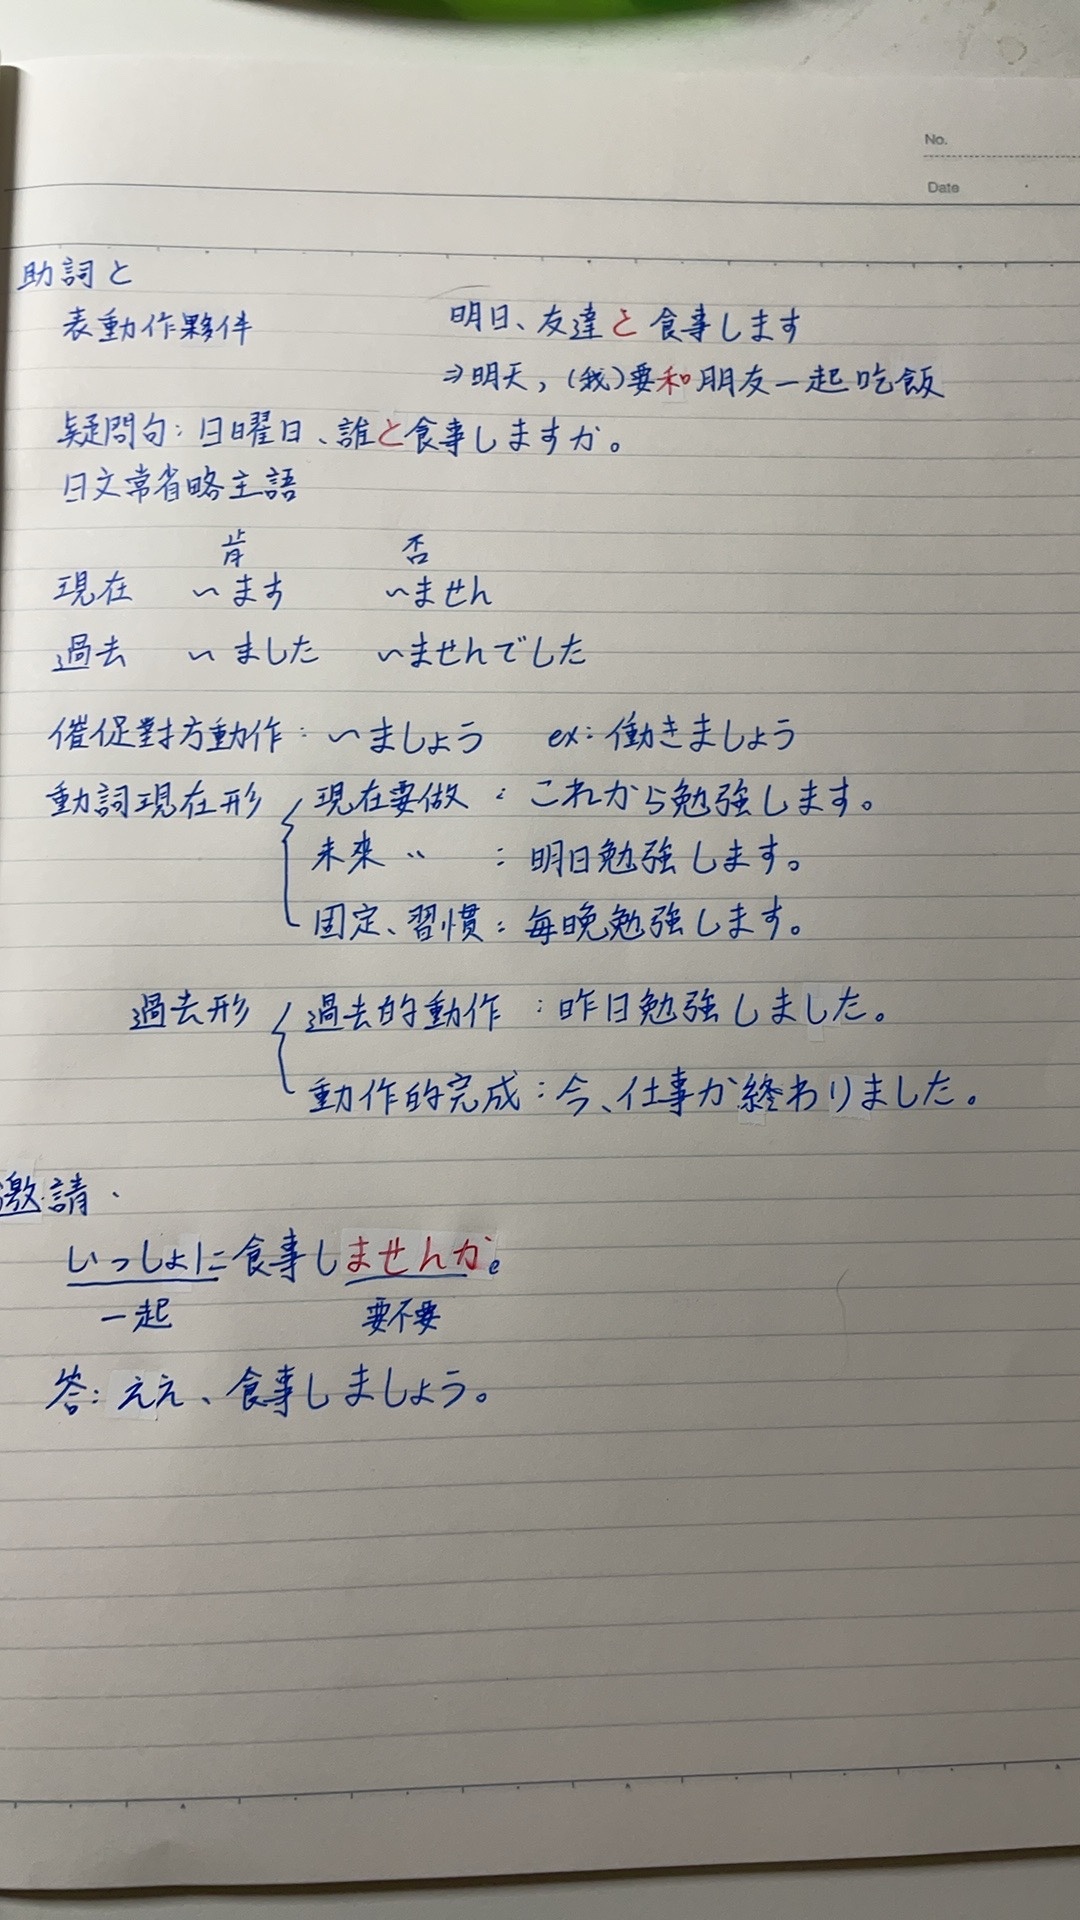 No.
Date
助詞と
表動作夥伴 明日、友達と食事します
⇒明天,(我)要和朋友一起吃飯
疑問句:日曜日、誰と食事しますか。
日文常省略主語
肯 否
現在 〜ます 〜ません
過去 〜ました 〜ませんでした
催促對方動作:〜ましょう ex:働きましょう
動詞現在形 現在要做:これから勉強します。
未來 〃 :明日勉強します。
固定、習慣:毎晚勉強します。
過去形 過去的動作:昨日勉強しました。
動作的完成:今、仕事か終わりました。
邀請.
いっしょに食事しませんか。
一起 要不要
答:ええ、食事しましょう。